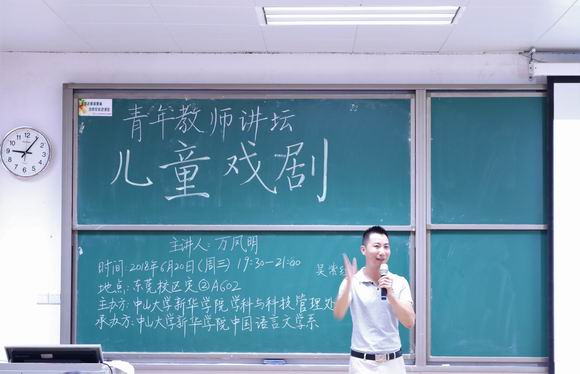 青年教师讲坛
儿童戏剧
主讲人:万凤明
时间:2018年6月20日(周三)19:30-21:00
地点:东莞校区实②A602
主办方:中山大学新华学院学科与科技管理处
承办方:中山大学新华学院中国语言文学系